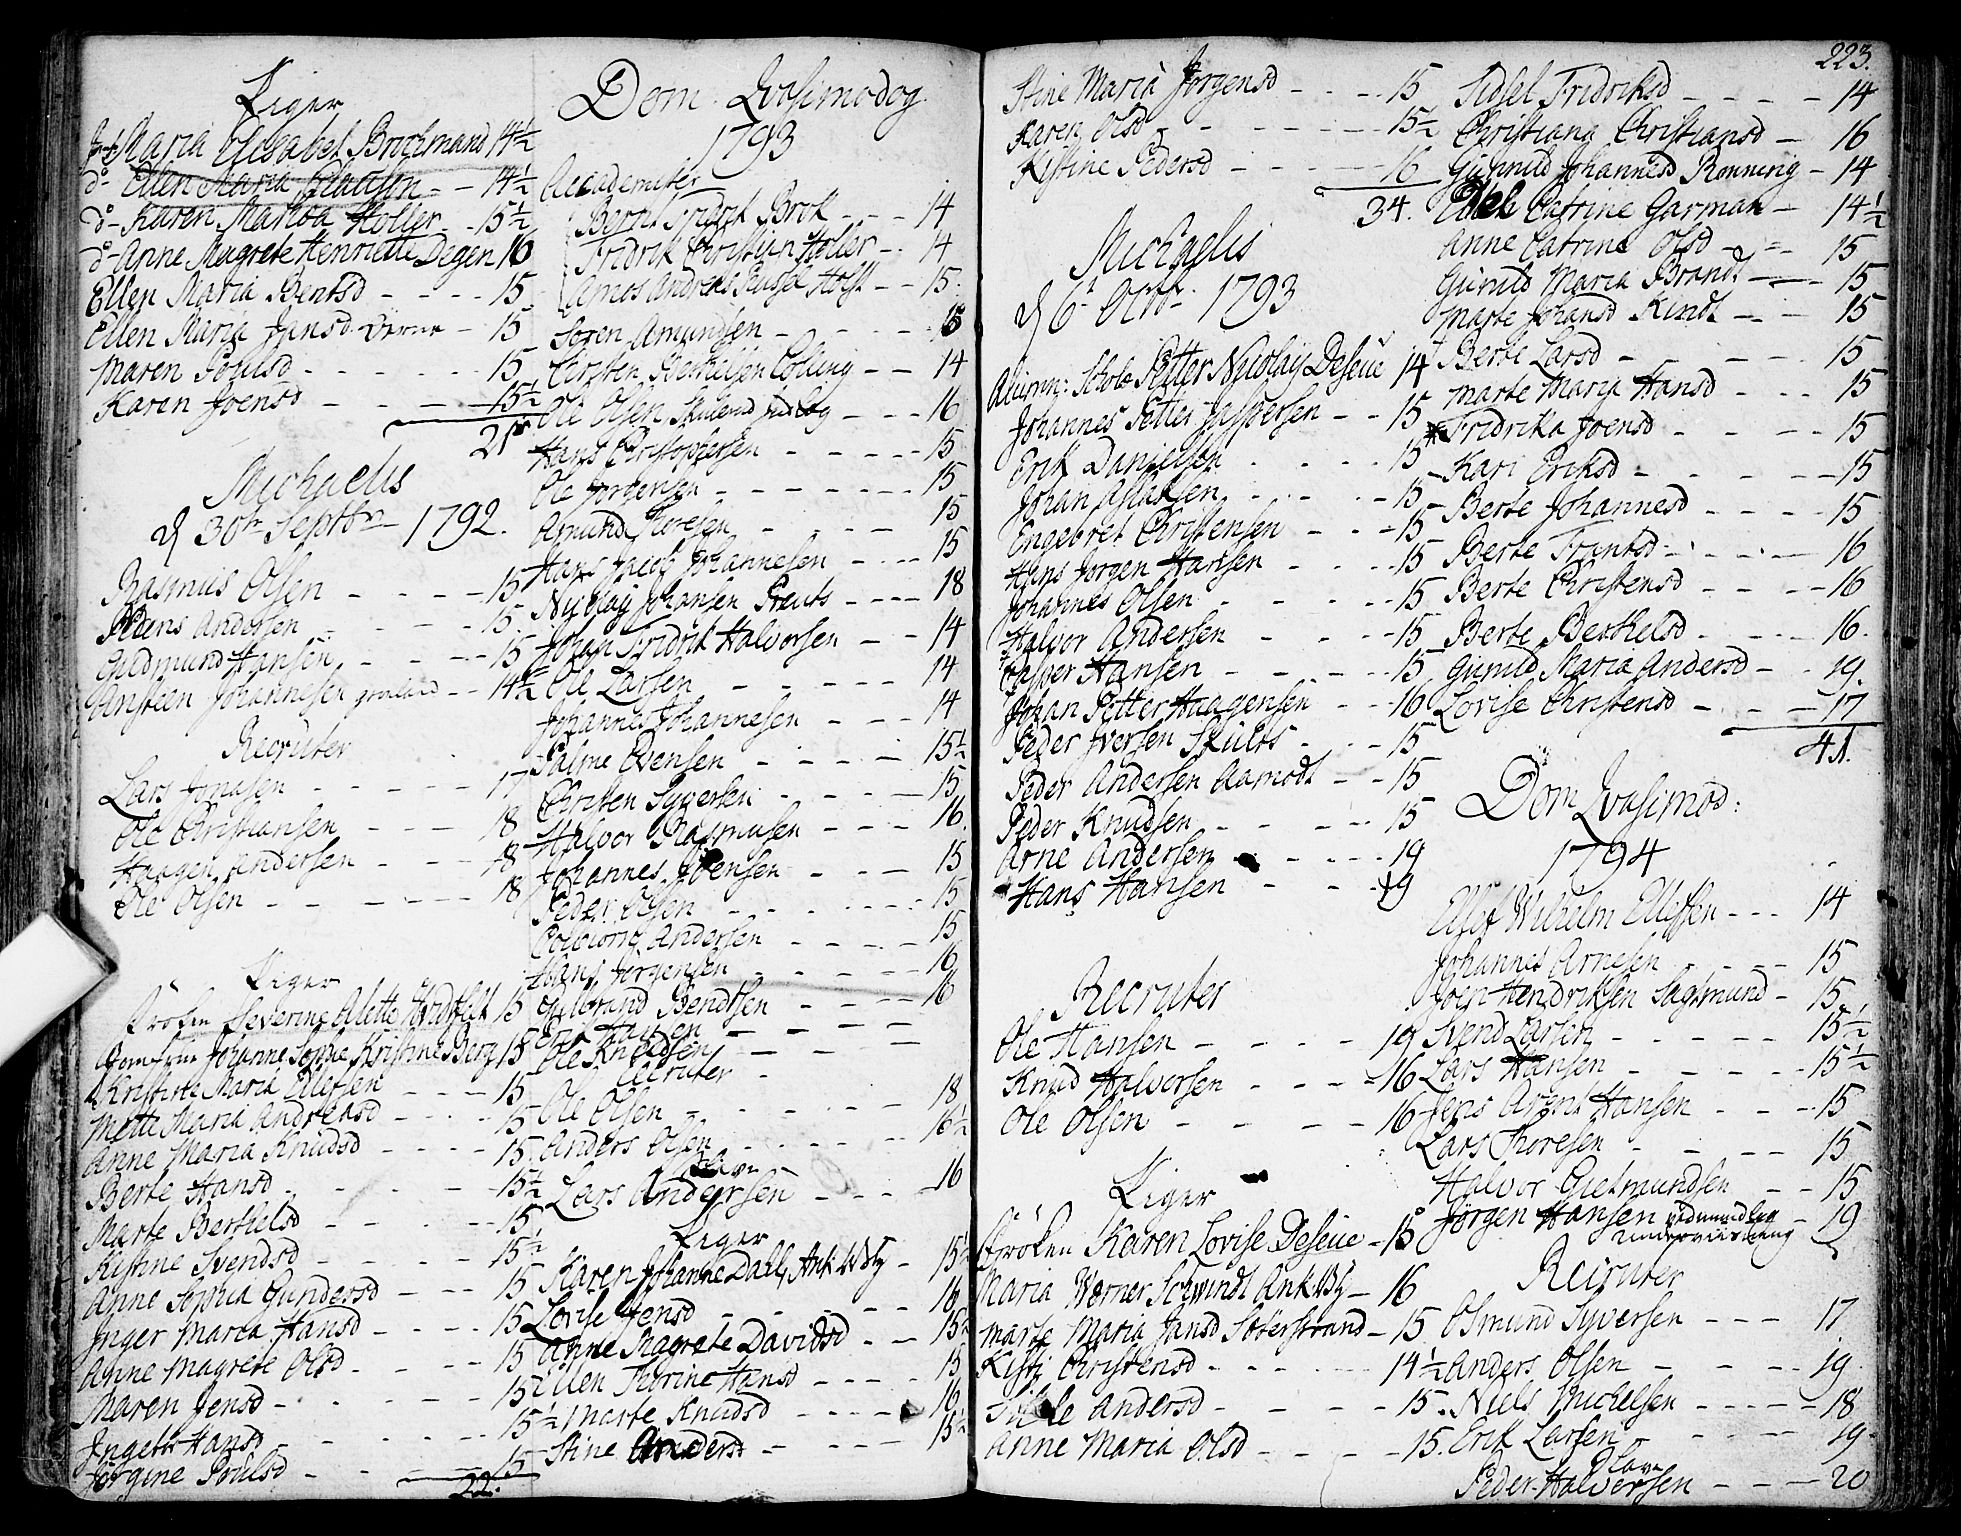 Piger
Maria Elisabet Brochmand 14½
d° Ellen Maria Clauson 14½
d° Karen Marica Holler 15½
d° Anne Magrete Henriette Degen 16
Ellen Maria Bentsd 15
Ellen Maria Jansd 15
Maren Poulsd 15
Karen Joensd 15½
21
Michaelis
d 30te Septbr 1792.
Rasmus Olsen 15
Andersen 15
Gudmund Hansen 15
Ansteen Johannesen 14½
Recruter
Lars Jonasen 17
Ole Christiansen 18
Haagen Andersen 18
Ole Olsen 18
Piger
Fröken Severine Alette 15
Jomfrue Johanne Sophie Kristine Berg 15
Kristine Maria Ellefsen 15
Mette Maria Andreasd 15
Anne Maria Knudsd 15
Berte Hansd 15½
Marte Berthelsd 15
Kistine Svendsd 15½
Anne Sophia Gundersd 15
Inger Maria Hansd 15
Anne Magrete Olsd 15
Maren Jensd 15
Ingebr Hansd 15½
Jörgine Poulsd 15
22.
Dom. Qvasimodog.
1793
Academiter
Bernt Fridrik Brok 14
Fridrik Christian Holler 14
Amos Andreas Holst 15
Sören Amundsen 15
Cirsten Berthelsen 14
Ole Olsen 16
Hans Christophersen 15
Ole Jörgensen 15
Amund Thoresen 15
Hans Jacob Johannesen 15
Nicolay Johansen Preuts 18
Johan Fridrik Halvorsen 14
Ole Larsen 14
Johannes Johannesen 14
Palme Evensen 15½
Christen Syversen 15
Halvor Rasmusen 16
Johannes Joensen 15
Peder Olsen 15
Andersen 15
Hans Jörgensen 16
Gulbrand Bendtsen 16
Erik Hansen
Ole Knudsen
Recruter
Ole Olsen 18
Anders Olsen 16½
Slave
Lars Andersen 16
Piger
Karen Johanne Dahl, Ank. Wbg 15½
Lovise Jensd 16
Anne Magrete Davidsd 15½
Ellen Thorine Hansd 15
Marte Knudsd 16
Stine Andersd 15½
Stine Maria Jörgensd 15
Karen Olsd 15½
Kistine Pedersd 16
34.
Michaelis
d 6t Octbr. 1793
Petter Nicolay Deseue 14
Johannes Petter Jespersen 15
Erik Danielsen 15
Johan Aslaksen 15
Engebret Christensen 15
Hans Jörgen Hansen 15
Johannes Olsen 15
Halvor Andersen 15
Casper Hansen 15
Johan Petter Haagensen 16
Peder Iversen Skults 15
Peder Andersen Aamodt 15
Peder Knudsen 15
Arne Andersen 19
Hans Hansen 19
Recruter
Ole Hansen 19
Knud Halvorsen 16
Ole Olsen 16
Piger
Fröken Karen Lovise Deseue 15
Maria Werner Schwindt Ank Wbg 16
Marte Maria Jansd Söterstrand 15
Kisti Christensd 14½
Andersd 15
Anne Maria Olsd 15
223.
Sidsel Fridriksd 14
Christiana Christiansd 16
Gunnild Johannesd Rönning 14
Catrine Garman 14½
Anne Catrine Olsd 15
Gunild Maria Brandt 15
Marte Johansd Kindt 15
Berte Larsd 15
Marte Maria Hansd 15
Fridrika Joensd 15
Kari Eriksd 15
Berte Johannesd 15
Berte Frantsd 16
Berte Christensd 16
Berte Berthelsd 16.
Gunild Maria Andersd 19.
Lovise Christensd 17
41.
Dom Qvasimod:
1794
Ellef Wilhelm Ellefsen 14
Johannes Arnesen 15
Joen Hendriksen Sagtmund 15
Svend Larsen 15½
Lars Hansen 15½
Jens Arent Hansen 15
Lars Thoresen 15
Halvor Gietmundsen 15
Jörgen Hansen 19
Recruter
Osmund Syversen 17
Anders Olsen 19
Niels Michelsen 18
Erik Larsen 19
Slave
Peder Halvorsen 20